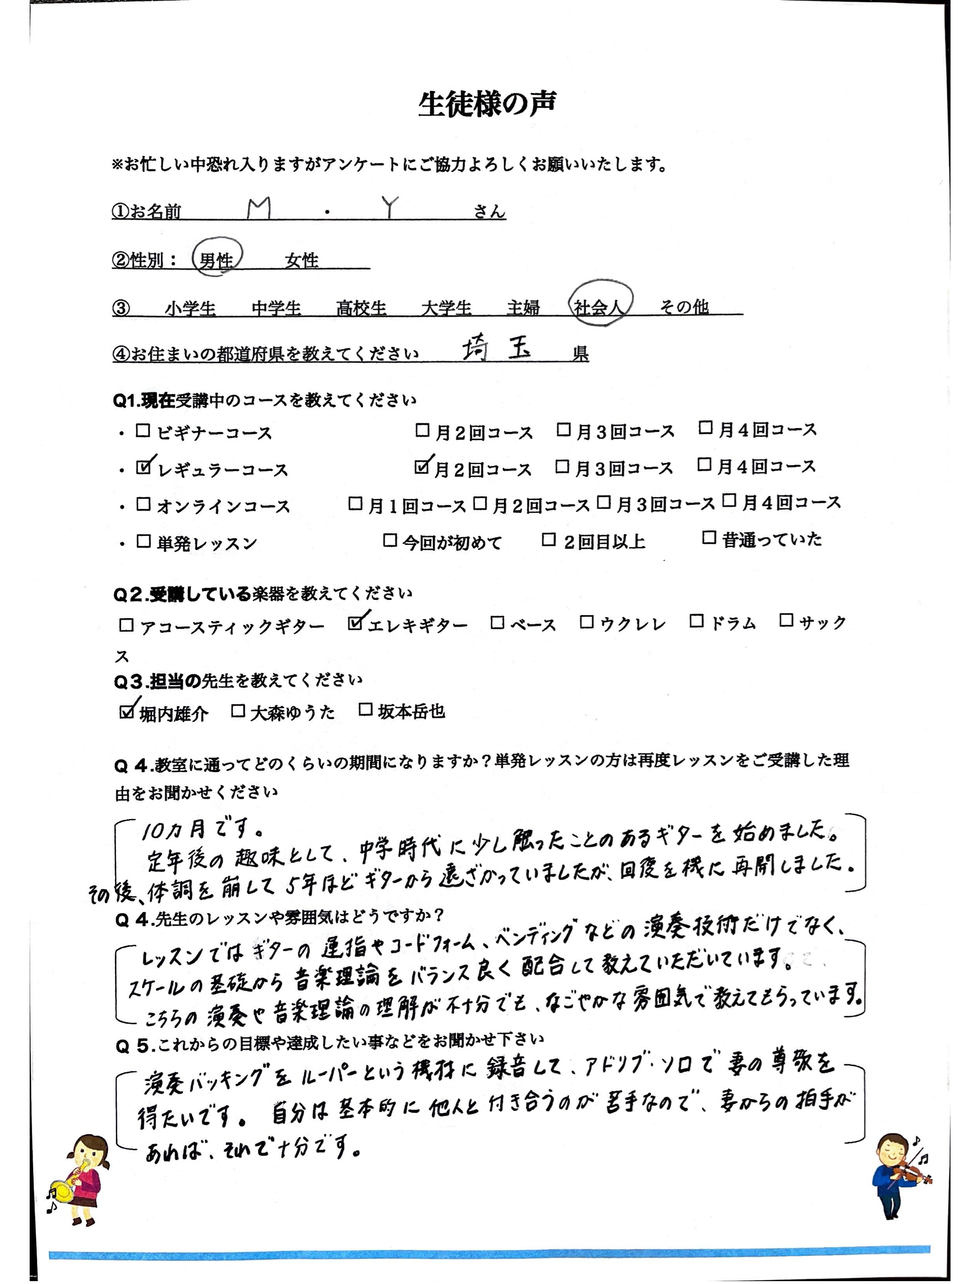 生徒様の声
※お忙しい中恐れ入りますがアンケートにご協力よろしくお願いいたします。
①お名前 M ・ Y さん
②性別： 男性 女性
③ 小学生 中学生 高校生 大学生 主婦 社会人 その他
④お住まいの都道府県を教えてください 埼玉 県
Q1.現在受講中のコースを教えてください
・☐ビギナーコース ☐月２回コース ☐月３回コース ☐月４回コース
・☑レギュラーコース ☑月２回コース ☐月３回コース ☐月４回コース
・☐オンラインコース ☐月１回コース ☐月２回コース ☐月３回コース ☐月４回コース
・☐単発レッスン ☐今回が初めて ☐２回目以上 ☐昔通っていた
Q２.受講している楽器を教えてください
☐アコースティックギター ☑エレキギター ☐ベース ☐ウクレレ ☐ドラム ☐サック
ス
Q３.担当の先生を教えてください
☑堀内雄介 ☐大森ゆうた ☐坂本岳也
Q４.教室に通ってどのくらいの期間になりますか？単発レッスンの方は再度レッスンをご受講した理
由をお聞かせください
10カ月です。
定年後の趣味として、中学時代に少し触ったことのあるギターを始めました。
その後、体調を崩して5年ほどギターから遠ざかっていましたが、回復を機に再開しました。
Q４.先生のレッスンや雰囲気はどうですか？
レッスンではギターの運指やコードフォーム、ベンディングなどの演奏技術だけでなく、
スケールの基礎から音楽理論をバランス良く配合して教えていただいています。
こちらの演奏や音楽理論の理解が不十分でも、なごやかな雰囲気で教えてもらっています。
Q５.これからの目標や達成したい事などをお聞かせ下さい
演奏バッキングをルーパーという機材に録音して、アドリブ・ソロで妻の尊敬を
得たいです。自分は基本的に他人と付き合うのが苦手なので、妻からの拍手が
あれば、それで十分です。